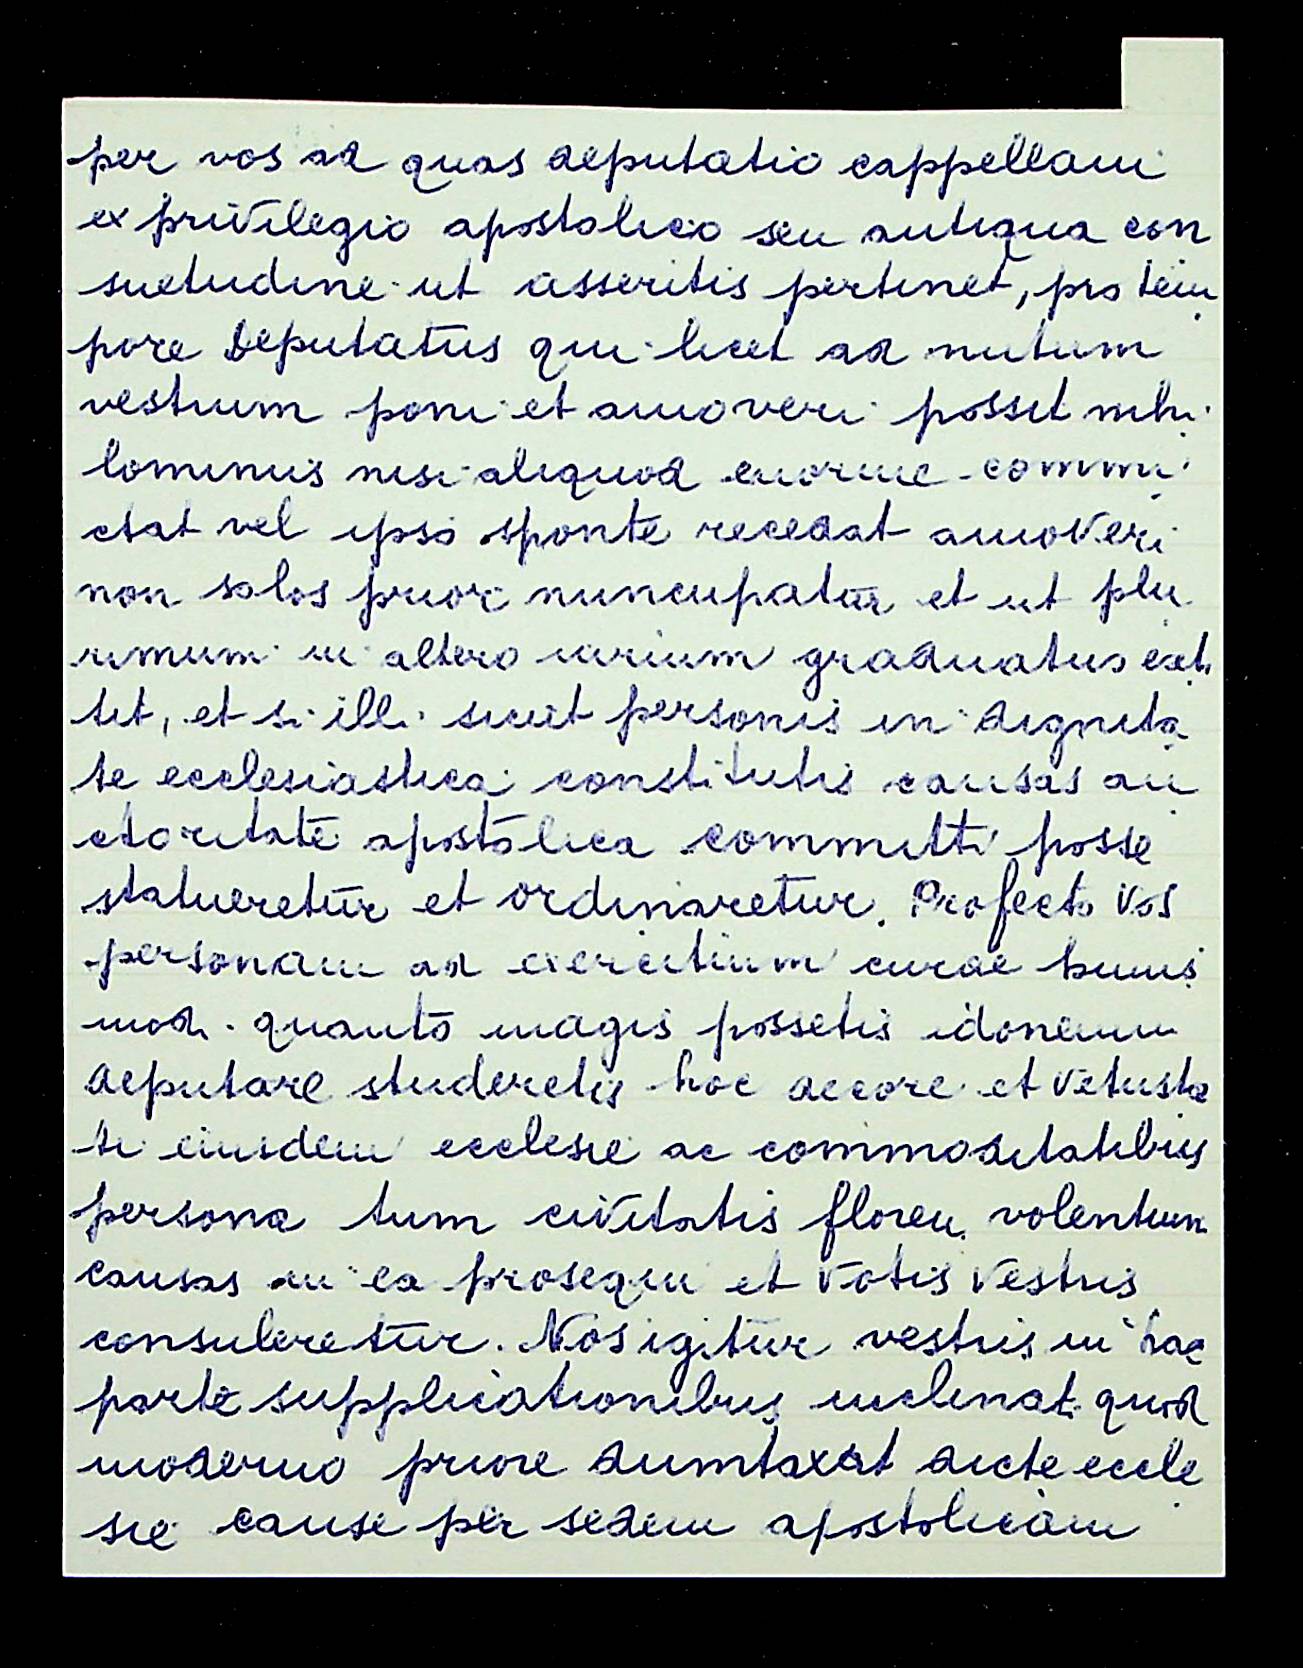 per vos ad quas deputatio cappellani
ex privilegio apostolico seu antiqua con
suetudine ut asseritis pertinet, pro tem
pore deputatus qui licet ad nutum
vestrum poni et amoveri possit nihi
lominus nisi aliquod enorme commi
ctat vel ipso sponte recedat amoveri
non solos prior nuncupatur et ut plu
rimum in altero iurium graduatus exti
tit, et si illi sicut personis in dignita
te ecclesiastica constitutis causas au
ctoritate apostolica committi posse
statueretur et ordinaretur. Profecto vos
personam ad exercitium curae huius
modi quanto magis possetis idoneum
deputare studeretis hoc decore et vetusta
ti eiusdem ecclesie ac commoditatibus
persona tum civitatis floren. volentum
causas in ea prosequi et votis vestris
consuleretur. Nos igitur vestris in hac
parte supplicationibus inclinat. quod
moderno priore dumtaxat dicte eccle
sie cause per sedem apostolicam